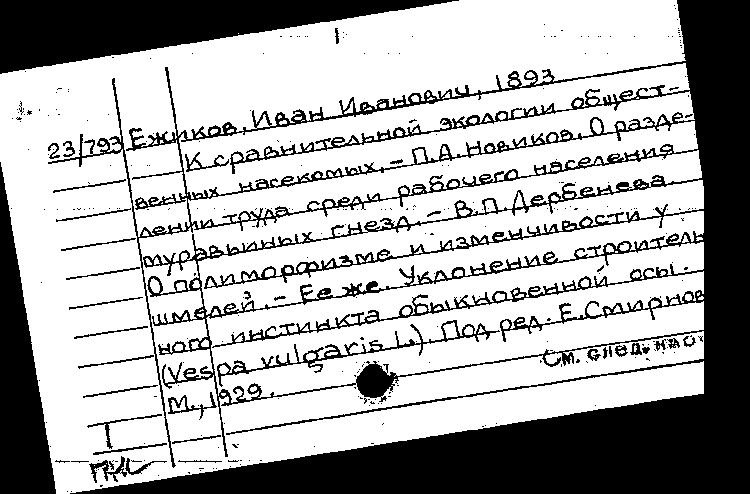 Ежиков, Иван Иванович, 1893
23/793 К сравнительной экологии общест-
венных насекомых. – П.А. Новиков. О разде-
лении труда среди рабочего населения
муравьиных гнезд. – В.П. Дербенева.
О полиморфизме и изменчивости у
шмелей. – Ее же. Уклонение строитель
ного инстинкта обыкновенной осы.
(Vespa vulgaris L.). Под ред. Е. Смирнов
М., 1929.
См. след.